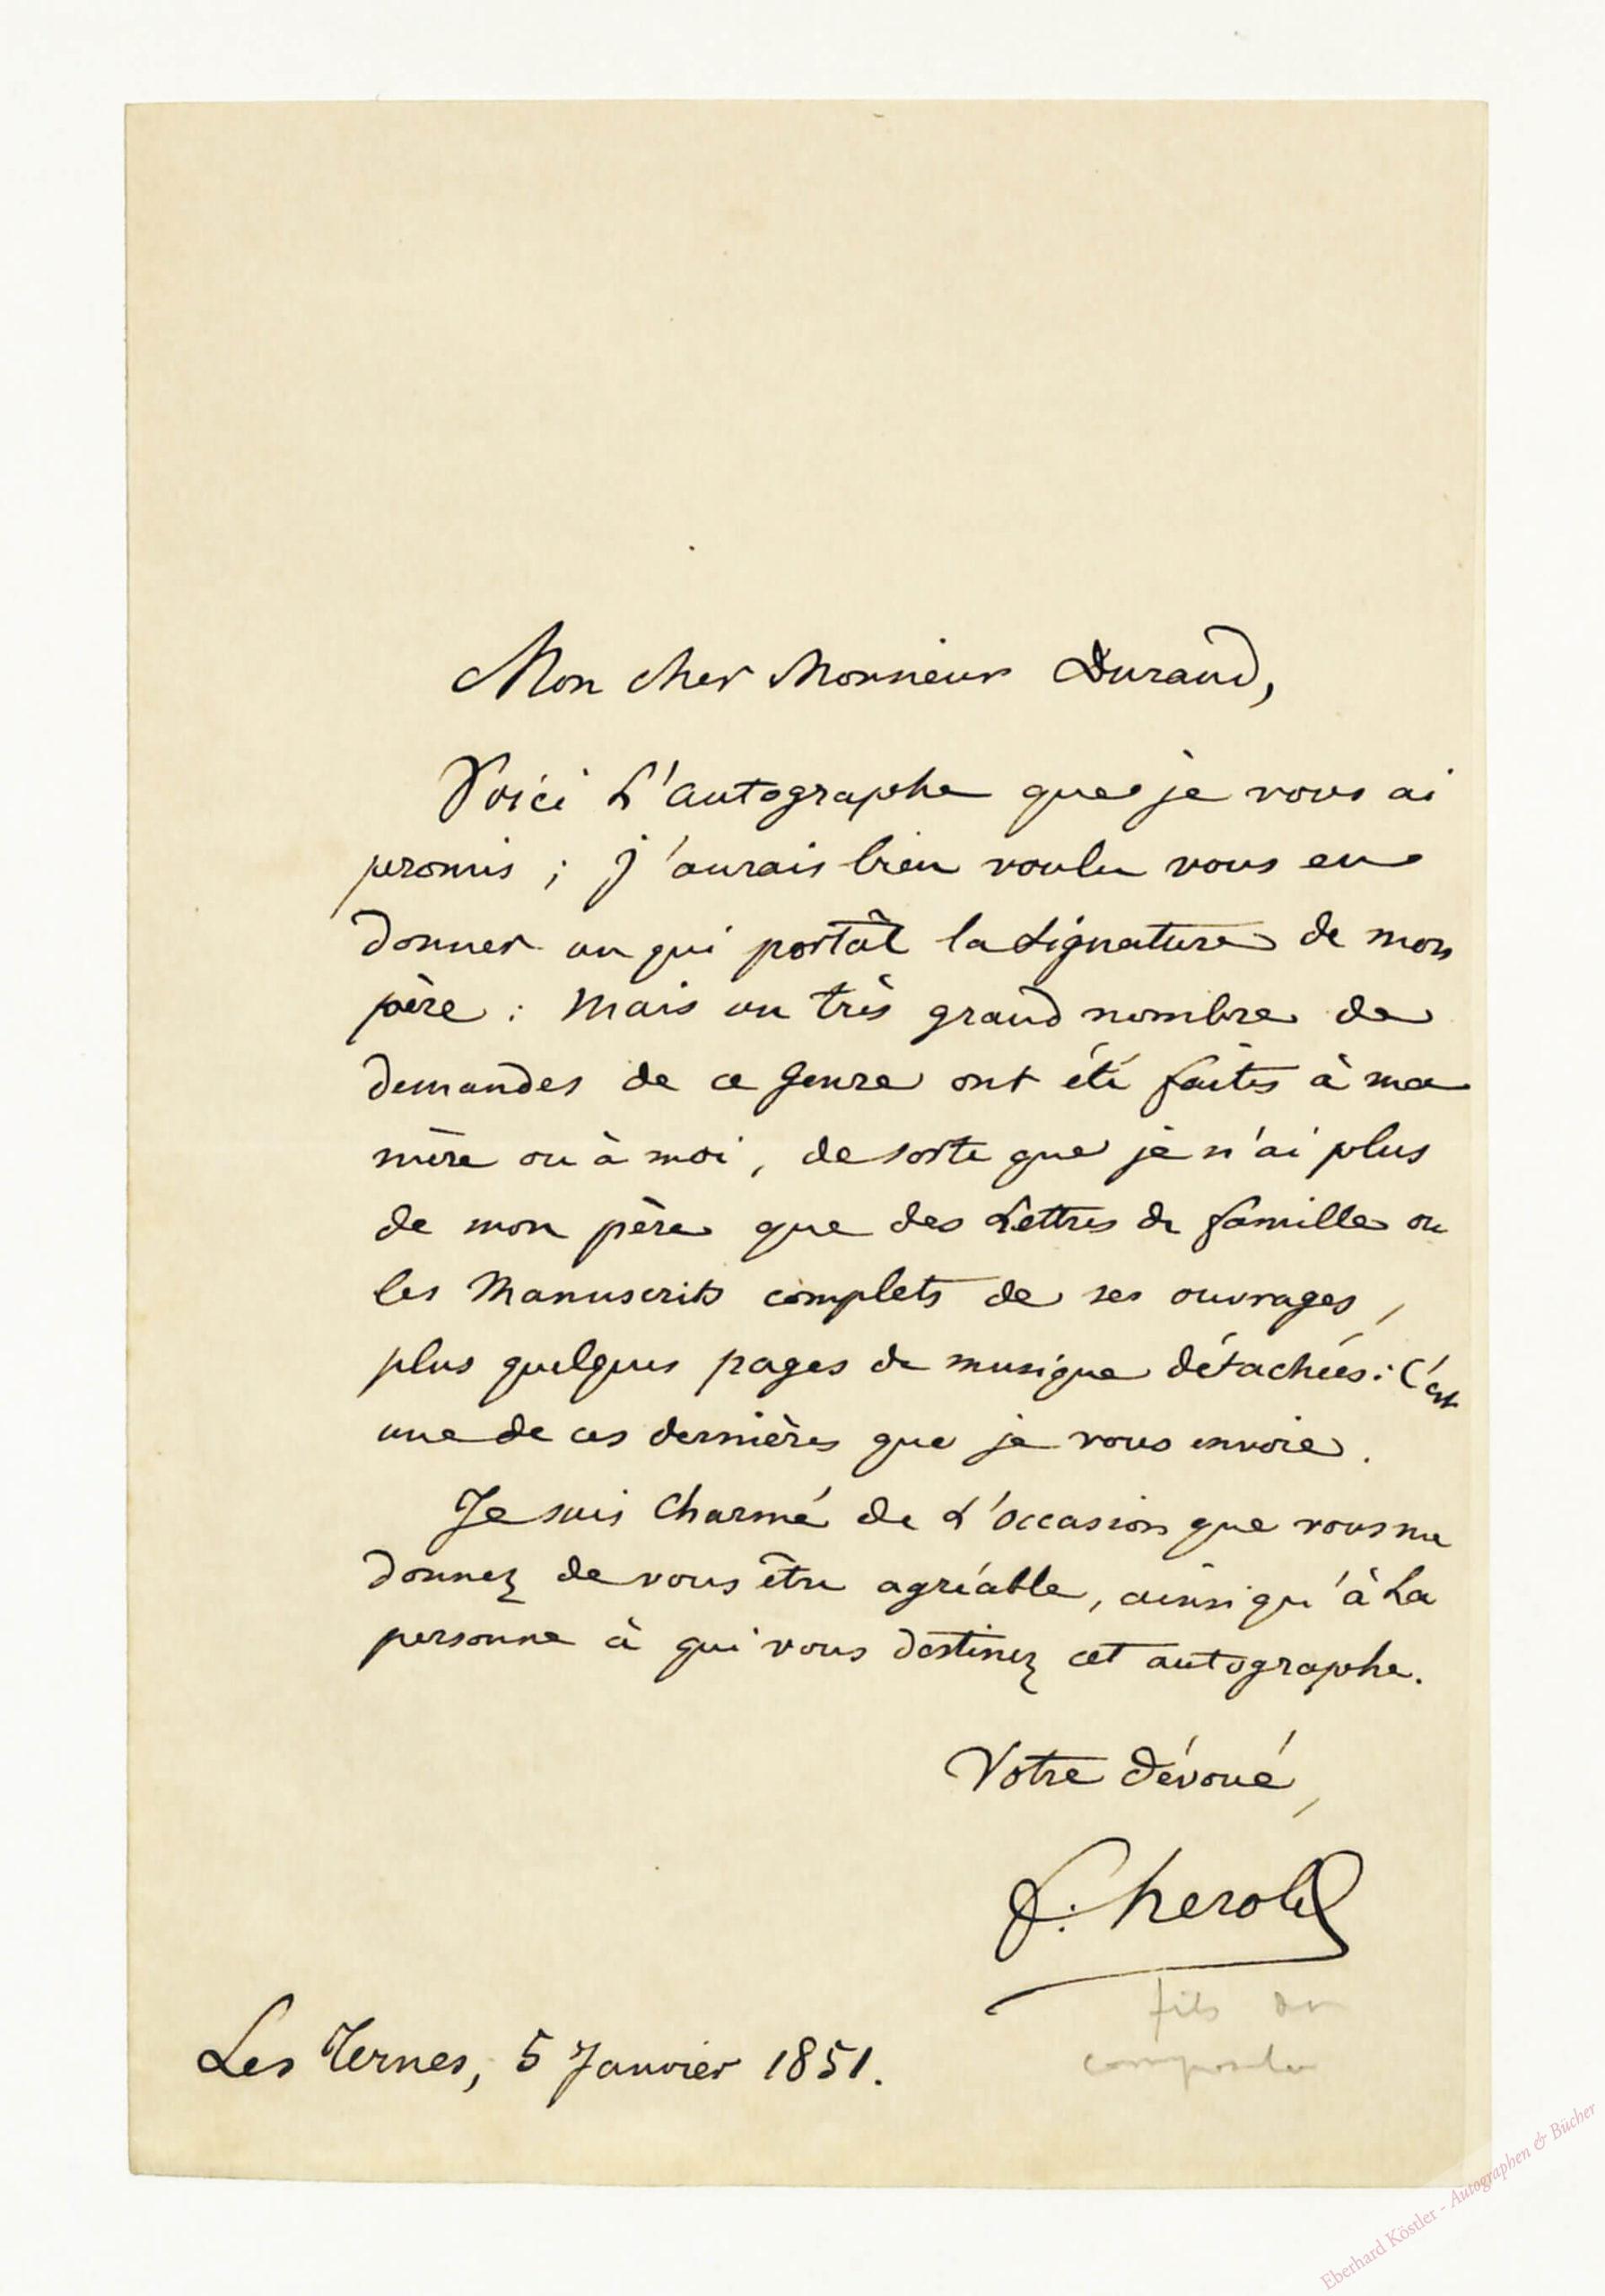 Mon cher Monsieur Durand,
Voici L'autographe que je vous ai
promis ; j'aurais bien voulu vous en
donner un qui portât la signature de mon
père : Mais un très grand nombre de
demandes de ce genre ont été faites à ma
mère ou à moi, de sorte que je n'ai plus
de mon père que des Lettres de famille ou
les Manuscrits complets de ses ouvrages,
plus quelques pages de musique détachées : C'est
une de ces dernières que je vous envoie.
Je suis Charmé de L'occasion que vous me
donnez de vous être agréable, ainsi qu'à La
personne à qui vous destinez cet autographe.
Votre dévoué,
F. herold
fils du
compositeur
Les Ternes, 5 Janvier 1851.
Eberhard Köstler - Autographen & Bücher